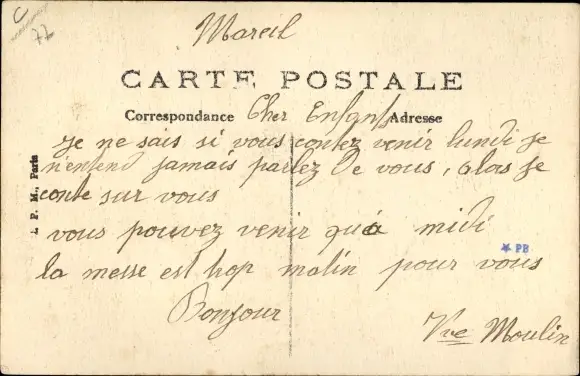 C
77
Mareil
CARTE POSTALE
Correspondance Cher Enfants Adresse
Je ne sais si vous contez venir lundi je
n'entend jamais parlez de vous, alors je
conte sur vous
vous pouvez venir qu'a midi
la messe est trop matin pour vous
Bonjour
Vve Moulin
I. P. M., Paris
* PB